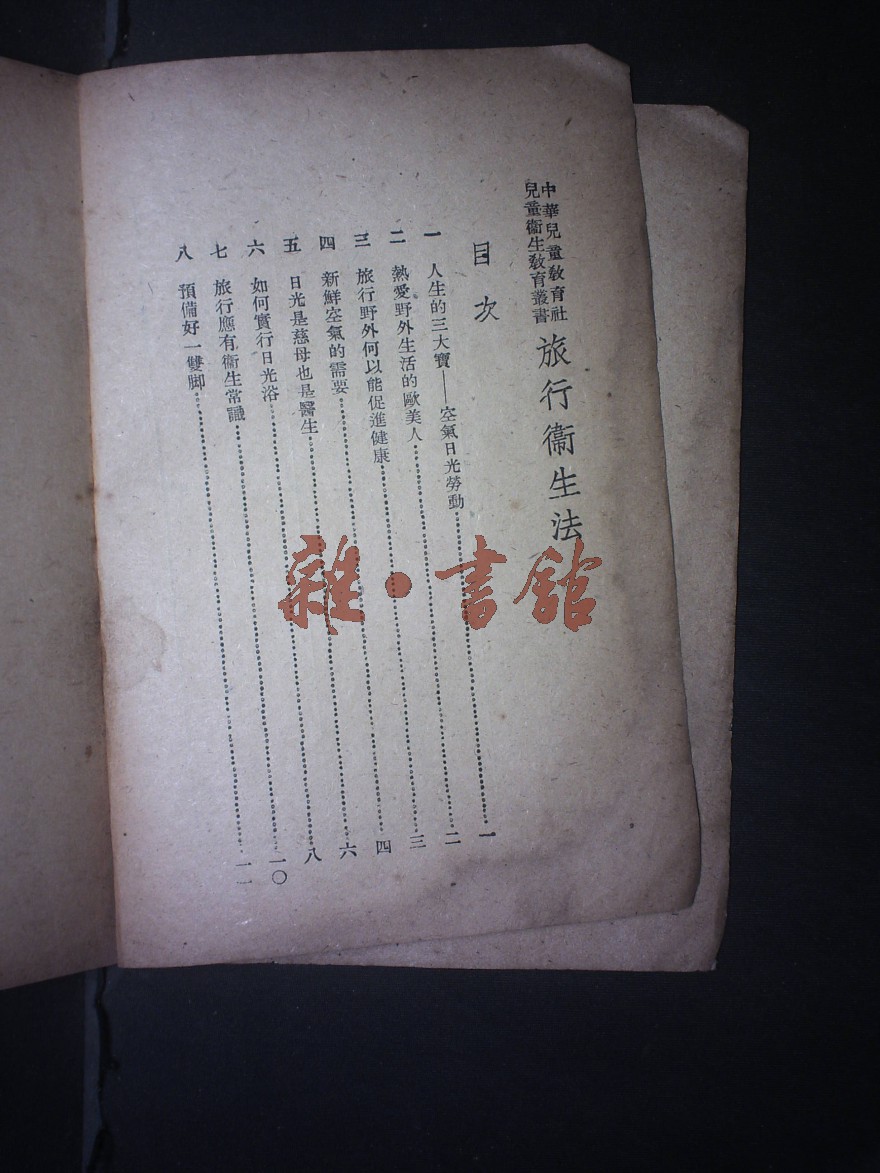 中華兒童教育社
兒童衞生教育叢書
旅行衞生法
目次
一 人生的三大寶——空氣日光勞動……一
二 熱愛野外生活的歐美人……二
三 旅行野外何以能促進健康……三
四 新鮮空氣的需要……四
五 日光是慈母也是醫生……六
六 如何實行日光浴……八
七 旅行應有衞生常識……一〇
八 預備好一雙脚……一一
雜·書館